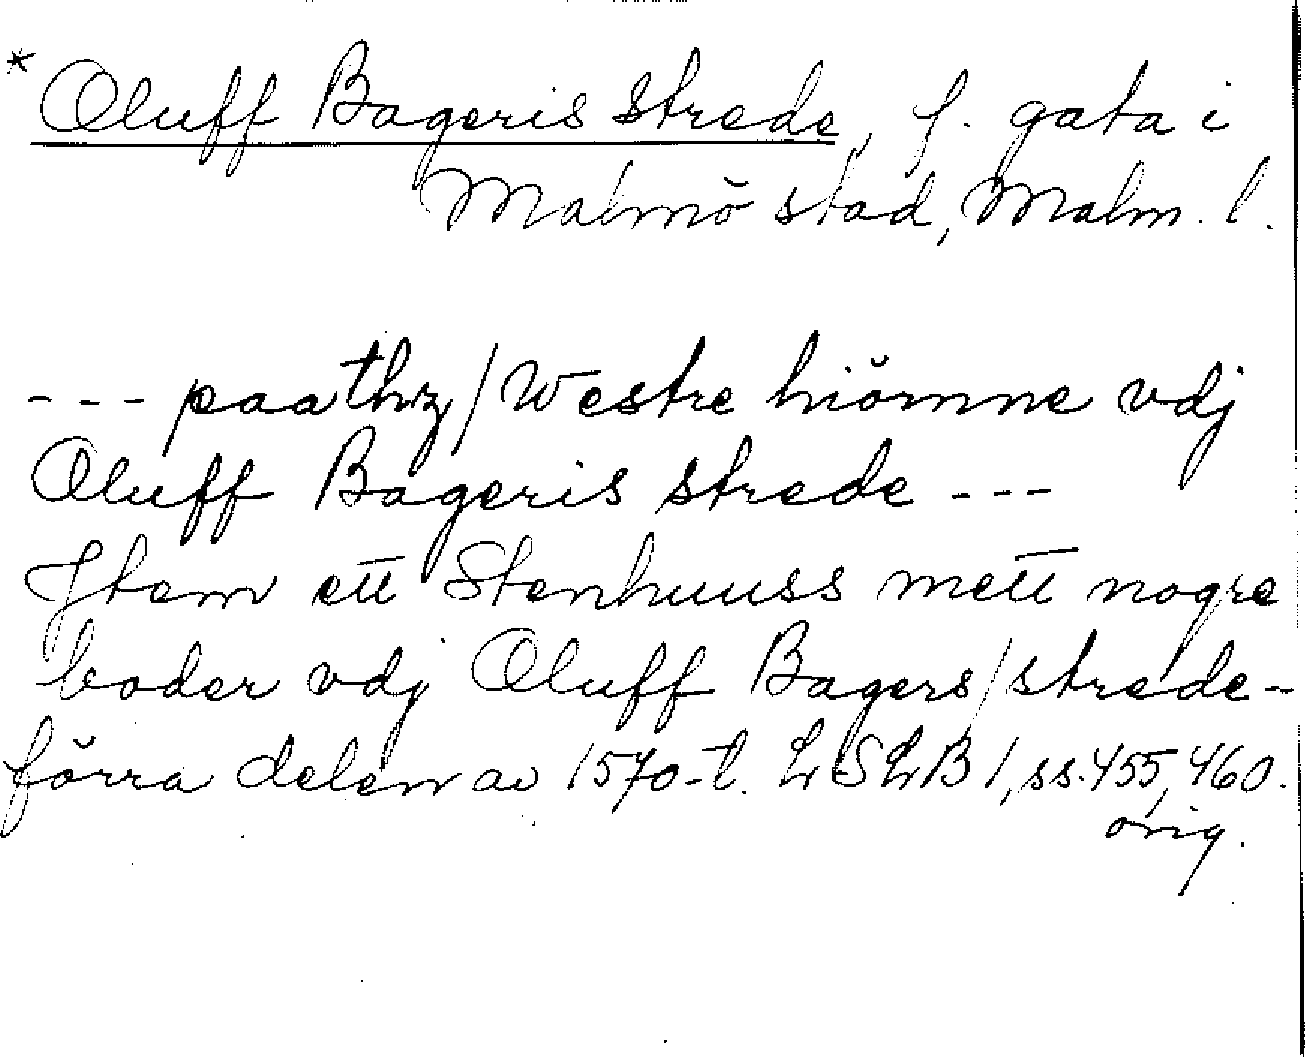 * Oluff Bageris strede, f. gata i
Malmö stad, Malm. l.
--- paa thz / Westre hiömne vdj
Oluff Bageris strede ---
Jtem ett Stenhuuss mett nogre
boder vdj Oluff Bagers / strede -
förra delen av 1570-t. LSLB 1, ss. 455, 460.
orig.